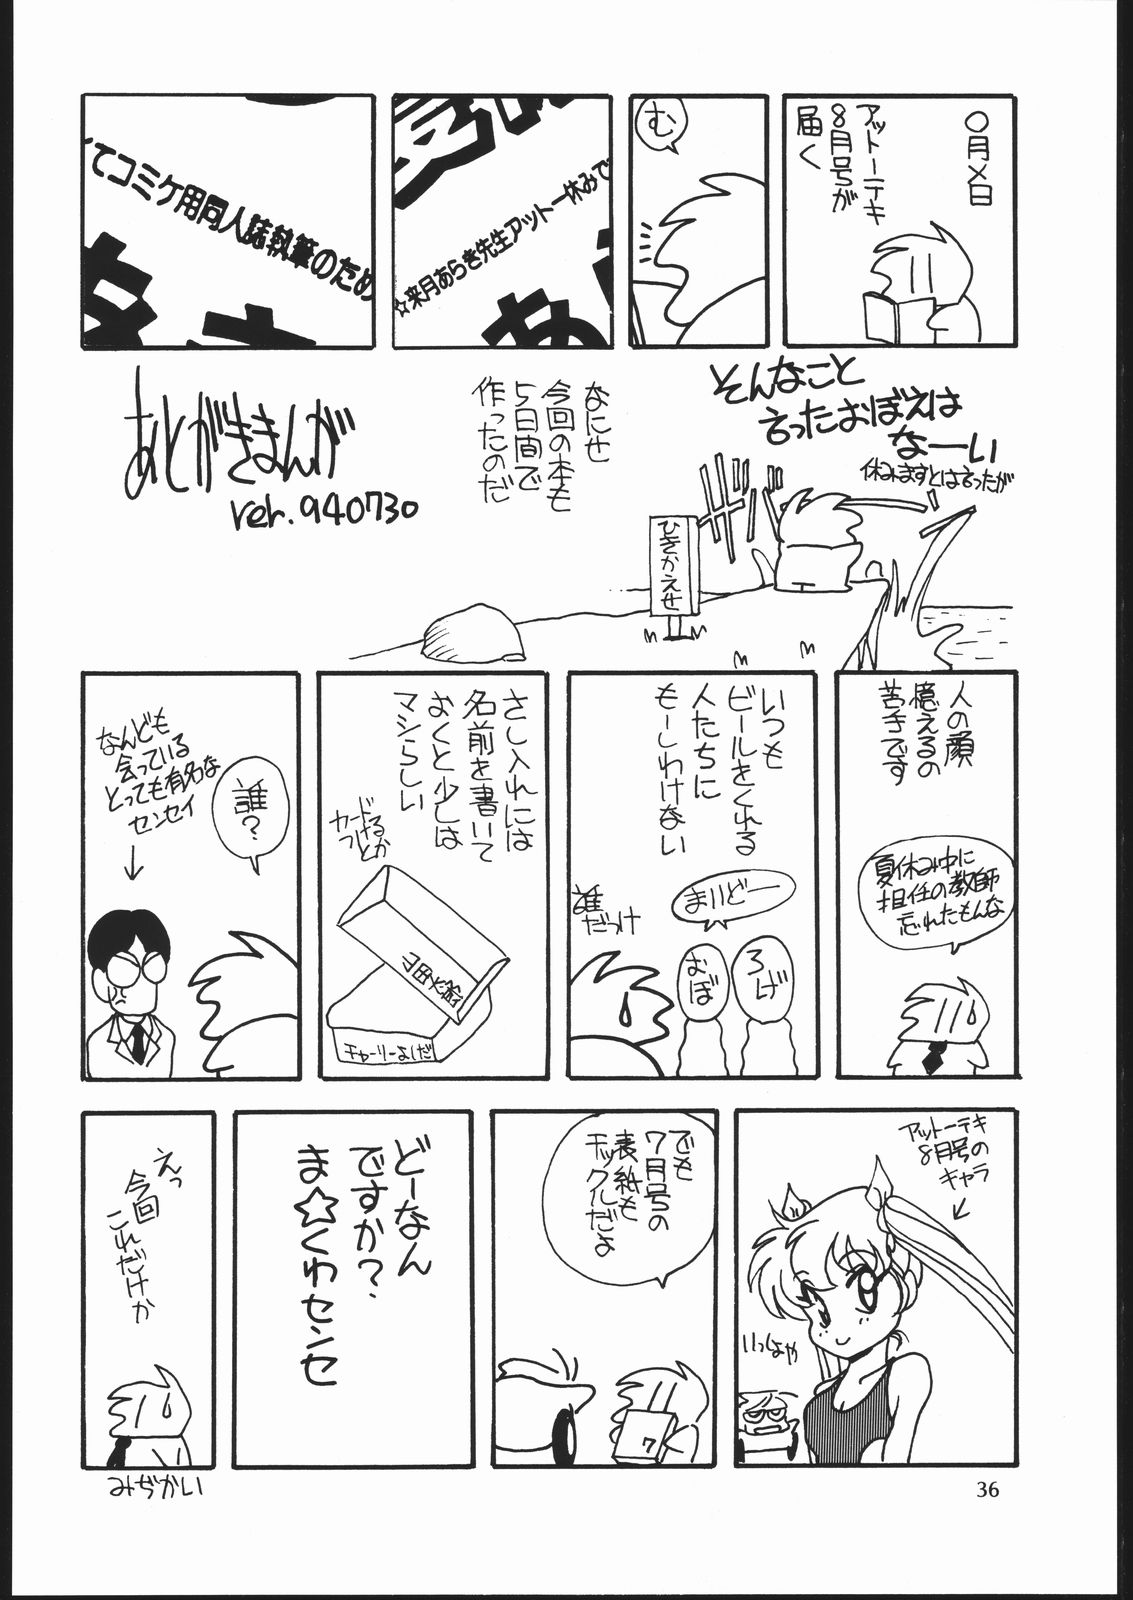 〇月×日
アットーテキ
8月号が
届く
む
☆来月あらき先生アットー休みで
てコミケ用同人誌執筆のため
そんなこと
言ったおぼえは
なーーい
休みますとは言ったが
ザバ
ひきかえせ
なにせ
今回の本も
5日間で
作ったのだ
あとがきまんが
ver.940730
人の顔
憶えるの
苦手です
夏休み中に
担任の教師
忘れたもんな
いつも
ビールをくれる
人たちに
もーしわけない
まいどー
ろげ
おぼ
誰だっけ
さし入れには
名前を書いて
おくと少しは
マシらしい
カード
つけるとか
チャーリーよしだ
誰?
なんども
会っている
とっても有名な
センセイ
アットーテキ
8月号の
キャラ
いっしょや
でも
7月号の
表紙も
チックルだよ
7
どーなん
ですか?
ま☆くわセンセ
えっ
今回
これだけか
みぢかい
36